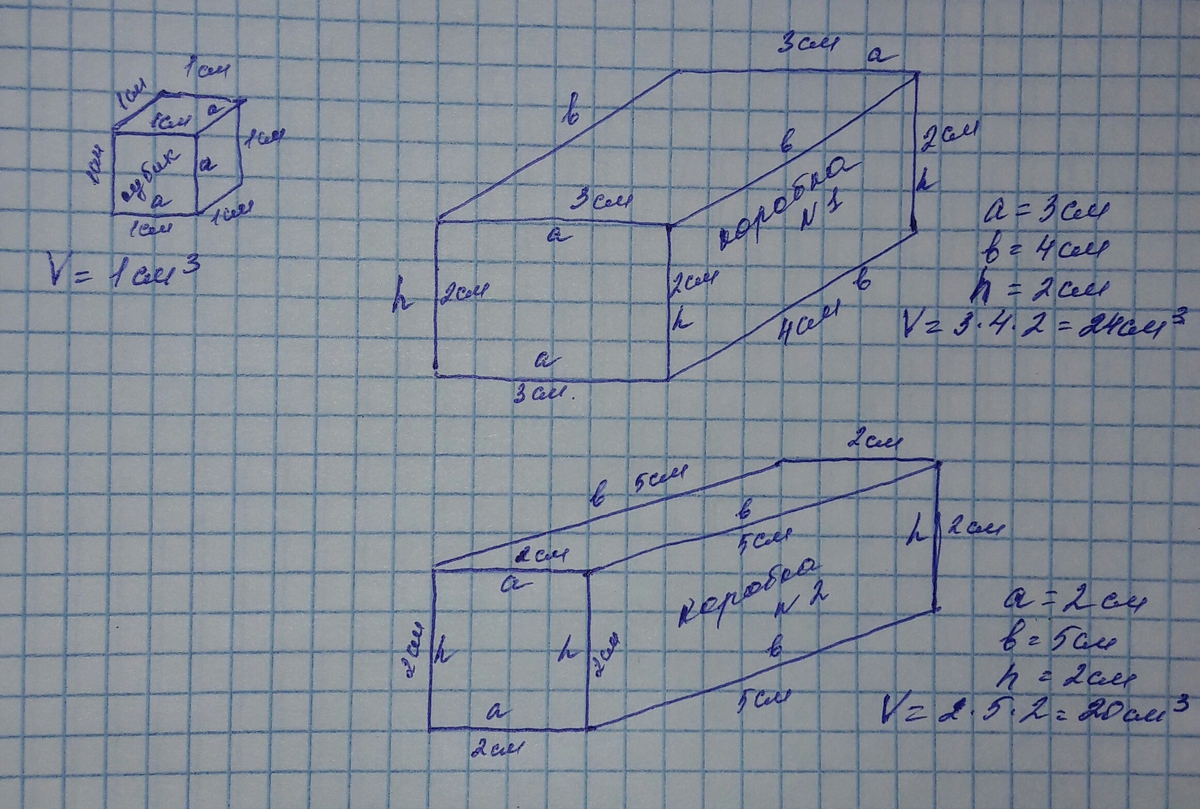 1см
1см
1см
a
1см
1см
кубик
a
a
1см
1см
V = 1см³
3см
a
в
в
2см
h
3см
a
коробка
N1
h
2см
2см
h
в
4см
a
3см.
a = 3см
в = 4см
h = 2см
V = 3·4·2 = 24см³
2см
в 5см
в
5см
h
2см
2см
a
коробка
N2
2см
h
h
2см
в
5см
a
2см
a = 2см
в = 5см
h = 2см
V = 2·5·2 = 20см³